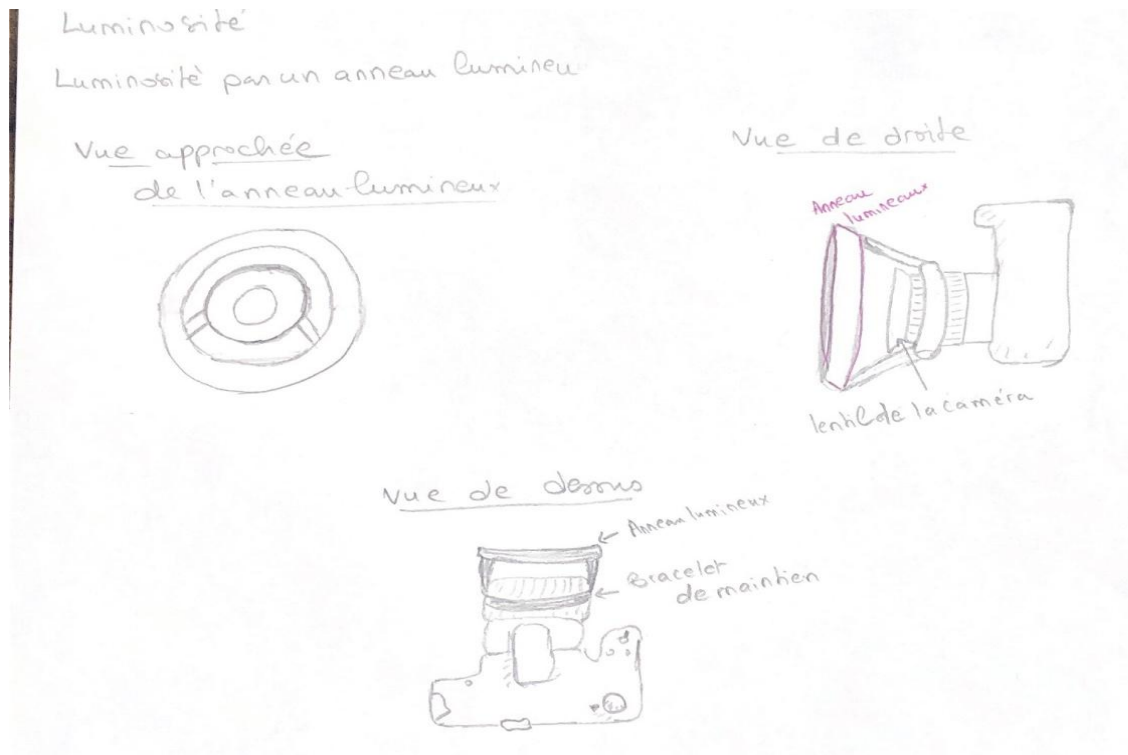 Luminosité
Luminosité par un anneau lumineu
Vue approchée
de l'anneau lumineux
Vue de droite
Anneau
lumineaux
lentil de la caméra
Vue de dessus
Anneau lumineux
Bracelet
de maintien